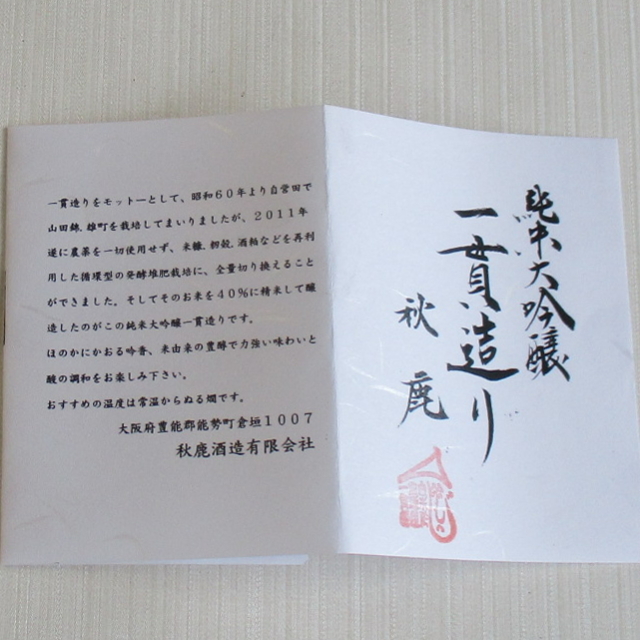 純米大吟醸
一貫造り
秋鹿
一貫造りをモットーとして、昭和60年より自営田で
山田錦、雄町を栽培してまいりましたが、2011年
遂に農薬を一切使用せず、米糠、籾殻、酒粕などを再利
用した循環型の発酵堆肥栽培に、全量切り換えること
ができました。そしてそのお米を40%に精米して醸
造したのがこの純米大吟醸一貫造りです。
ほのかにかおる吟香、米由来の豊醇で力強い味わいと
酸の調和をお楽しみ下さい。
おすすめの温度は常温からぬる燗です。
大阪府豊能郡能勢町倉垣1007
秋鹿酒造有限会社